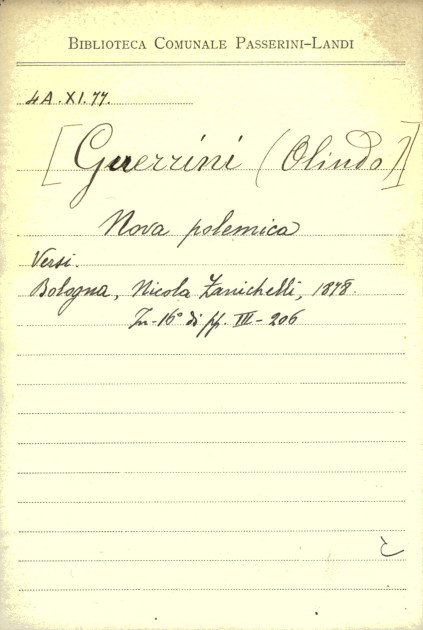 BIBLIOTECA COMUNALE PASSERINI-LANDI
4A.XI.77.
[Guerrini (Olindo)]
Nova polemica
Versi.
Bologna, Nicola Zanichelli, 1878.
In-16° di pp. III-206